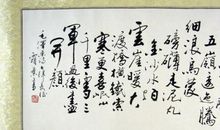 五嶺逶迤騰
細浪烏蒙
磅礴走泥丸
金沙水拍
雲崖暖大
渡橋橫鐵索
寒更喜岷山
千里雪三
軍過後盡
開顏